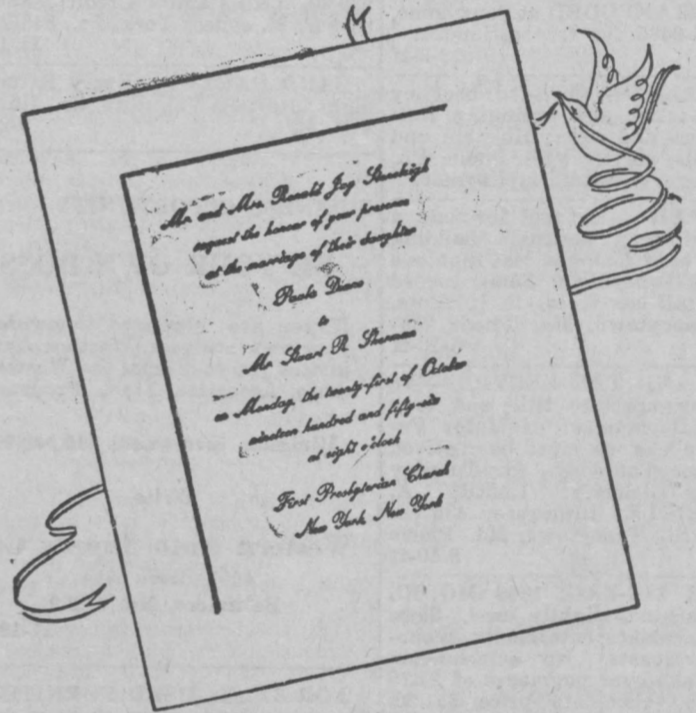 Mr. and Mrs. Ronald Jay Stuneleigh
request the honour of your presence
at the marriage of their daughter
Paula Diane
to
Mr. Stuart R. Sherman
on Monday, the twenty-first of October
nineteen hundred and fifty-six
at eight o'clock
First Presbyterian Church
New York, New York